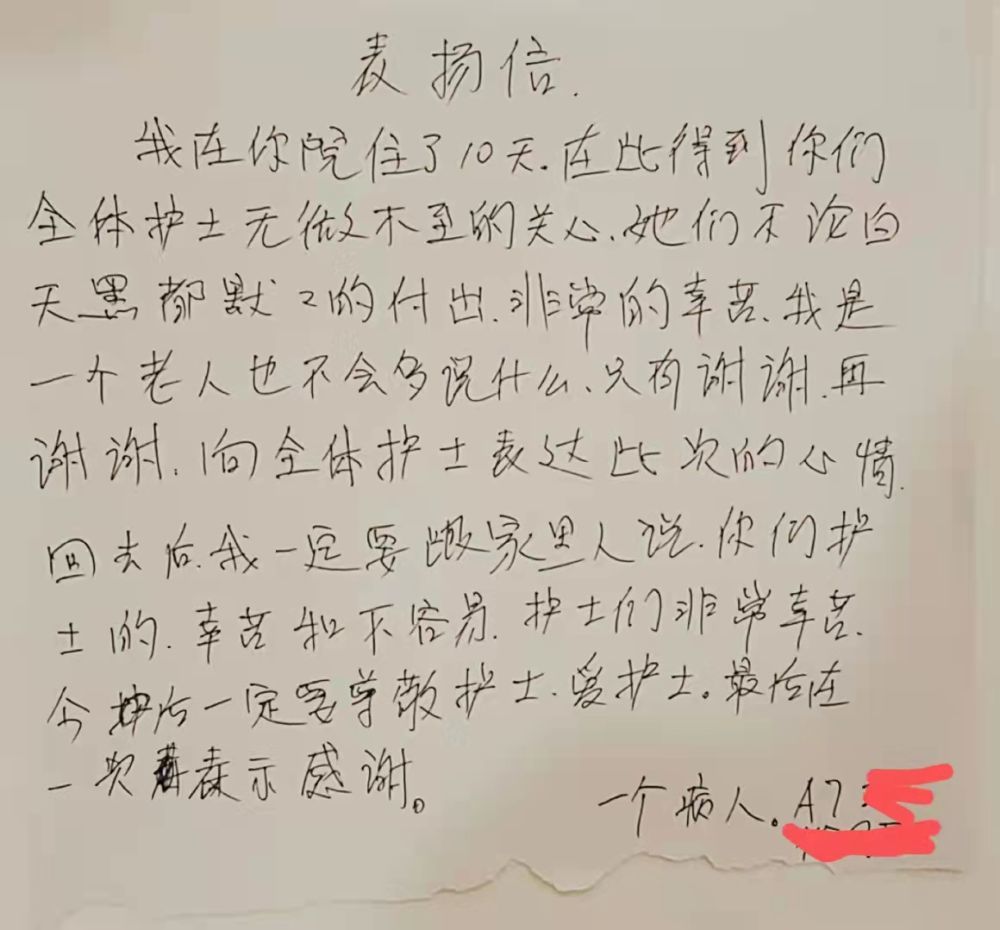 表扬信.
我在你院住了10天.在此得到你们
全体护士无微不至的关心、她们不论白
天黑都默々的付出.非常的辛苦.我是
一个老人也不会多说什么、只有谢谢.再
谢谢.向全体护士表达此次的心情.
回去后.我一定要跟家里人说.你们护
士的.幸苦和不容易.护士们非常幸苦.
今后一定要尊敬护士.爱护士。最后在
一次表示感谢。
一个病人。A7